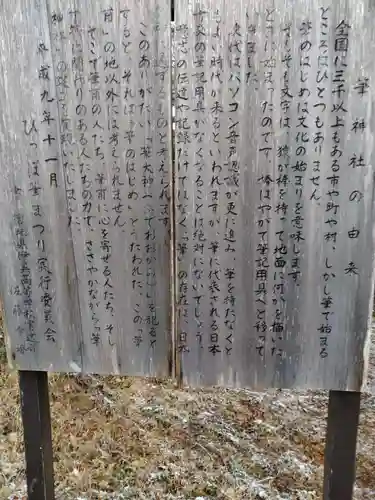 筆神社の由来
全国に三千以上もある市や町や村、しかし筆で始まる
ところはひとつもありません。
筆のはじめは文化の始まりを意味します。
そもそも文字は、猿が棒を持って地面に何かを描いた
ことに始まったのです。棒はやがて筆記用具へと移って
いきました。
次代はパソコン、音声認識が更に進み、筆を持たなくと
もよい時代が来るといわれますが、筆に代表される日本
十文の筆記用具がなくなることは絶対にないでしょう。
歴史の伝達や記録だけではなく「筆」の存在は、日本
に通ずるものと考えられます。
このありがたい「筆大神」を祀ると
すると、それは「筆のはじめ」とうたわれた、この「筆
甫」の地以外には考えられません。
そこで筆甫の人たち、筆甫に心を寄せる人たち、そし
て筆に関わりのある人たちの力で、ささやかながら「筆
神社」の
平成九年十一月
ひっぽ筆まつり実行委員会